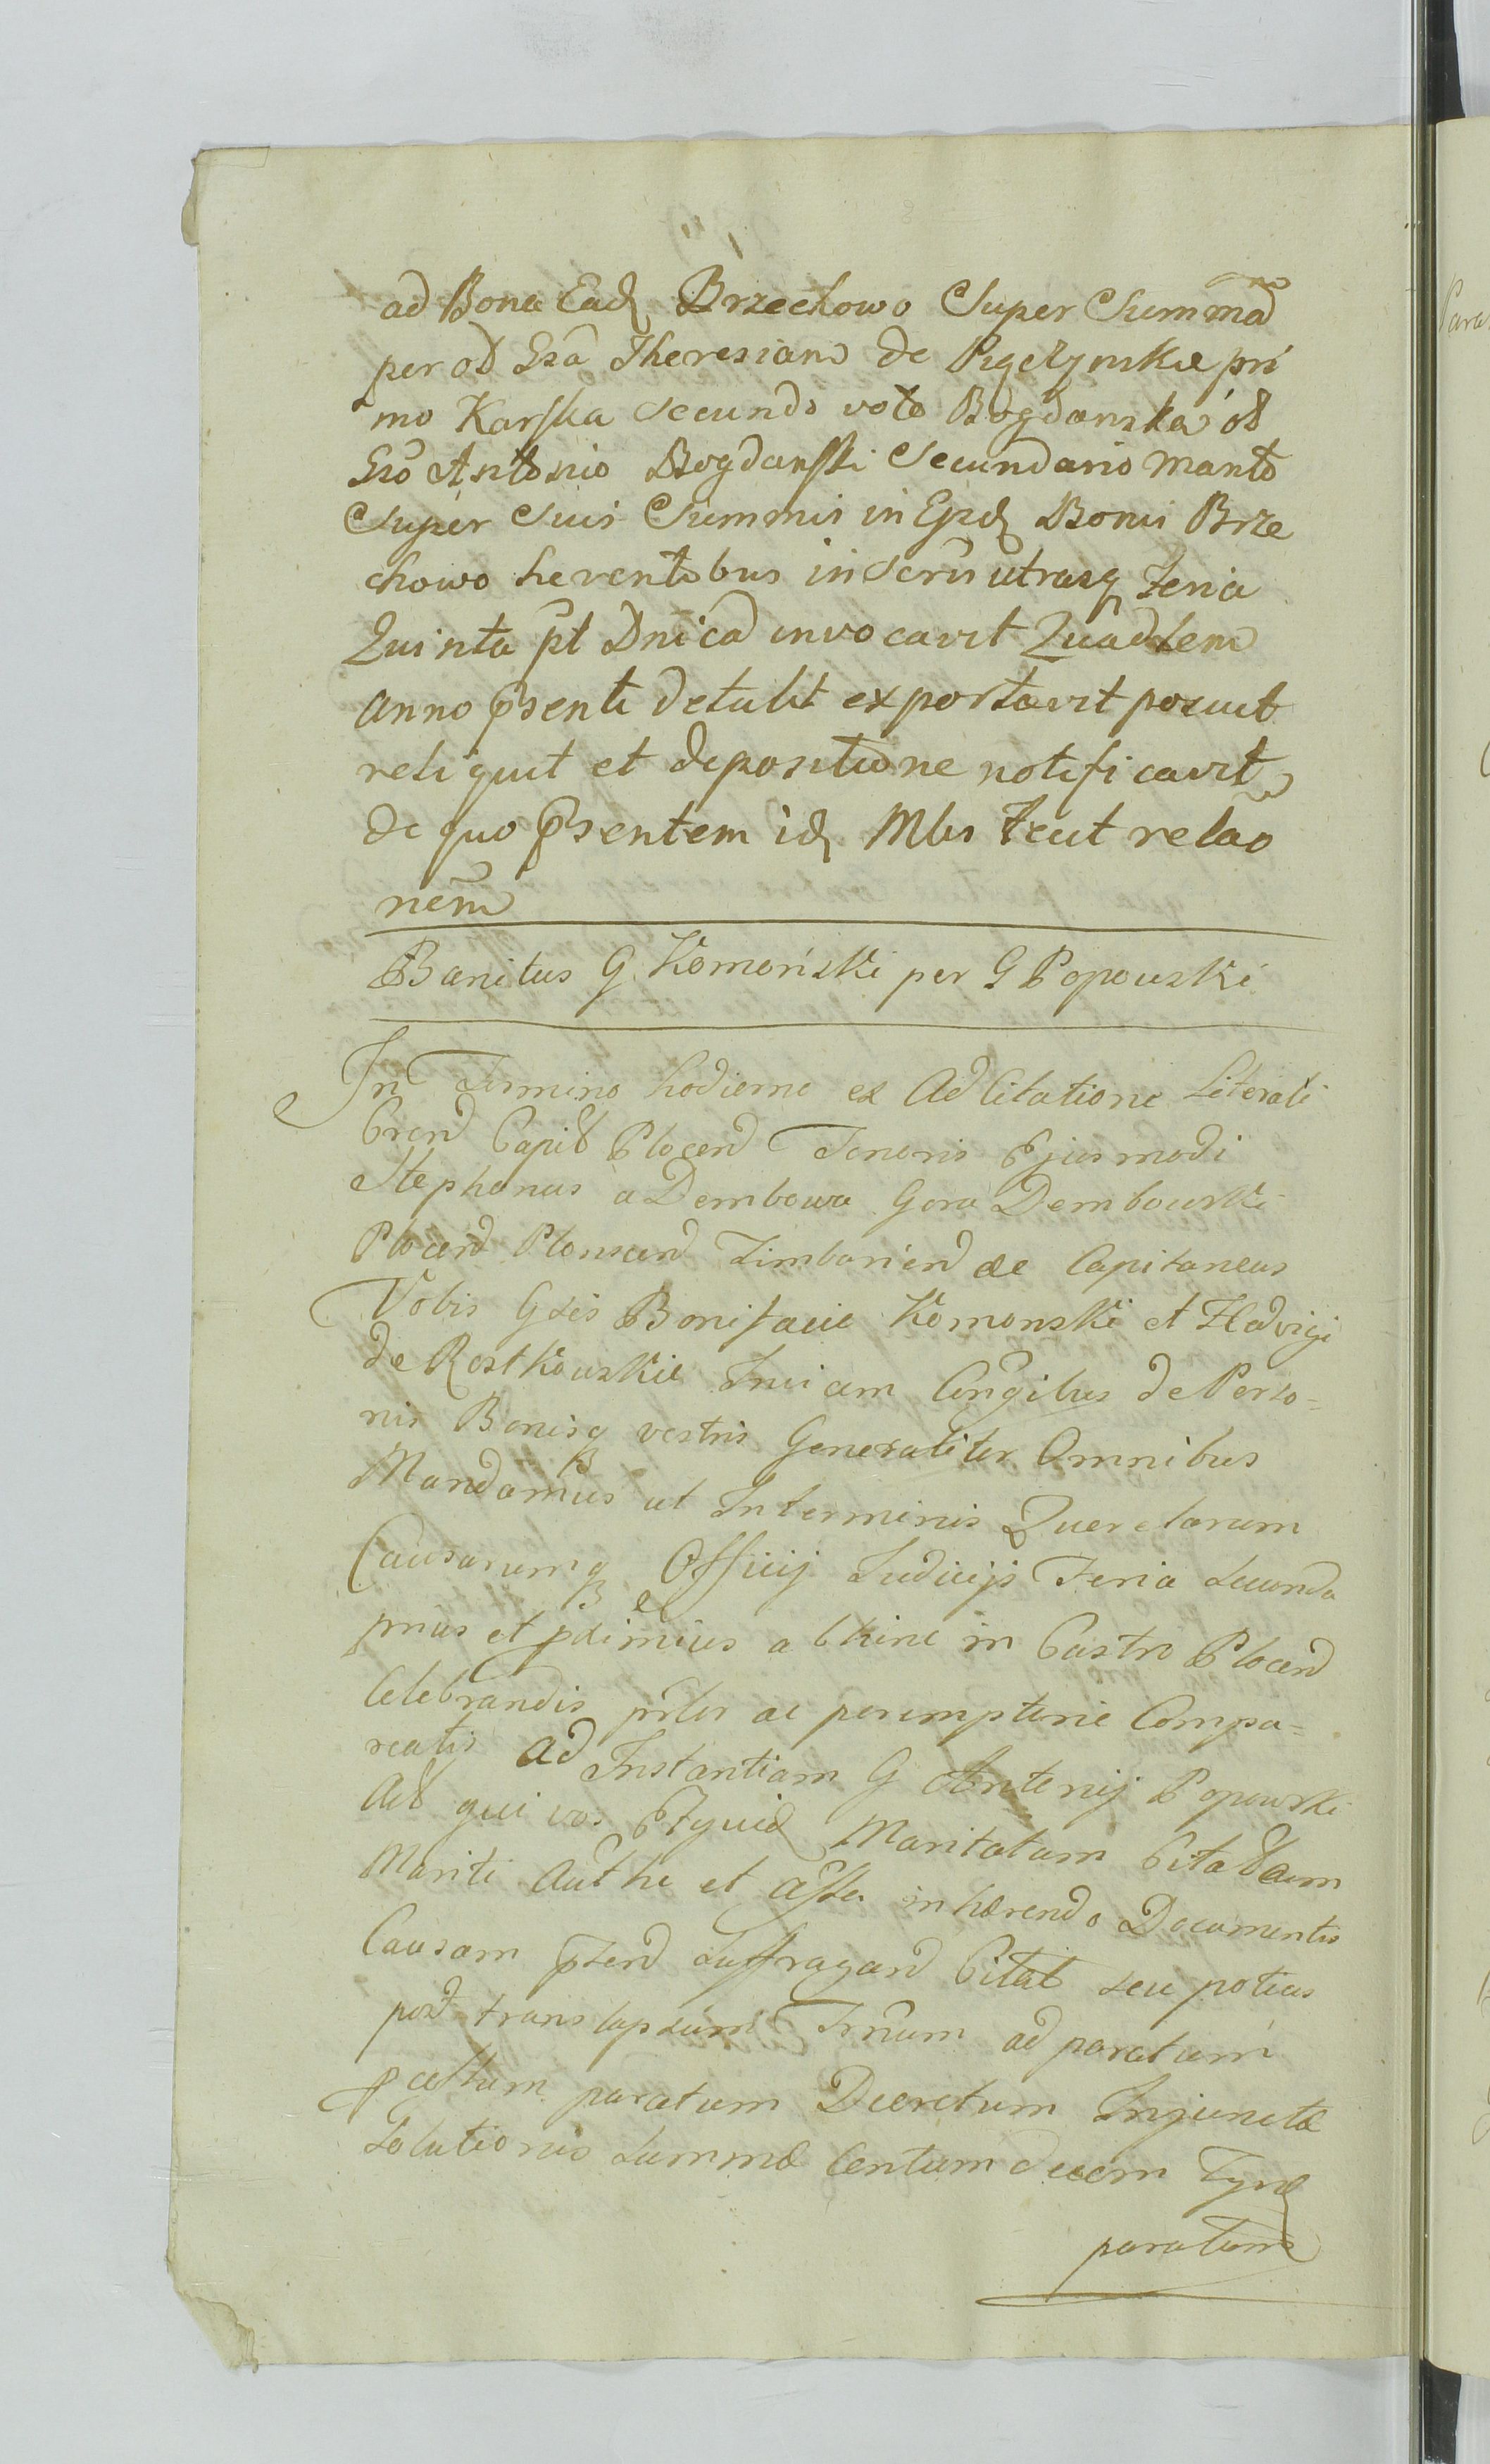 ad Bona Ead Brzechowo Super Summad
per od Gsa Theresiam de Pigelynskie pri
mo Karska Secundo voto Bogdanska od
Gso Antonio Bogdanski Secundario Marito
Super Suis Summis in Ejsd Bonis Brze
chowo herentibus inscrīī utrasq Feria
Quinta pt Dnicā invocavit Quadlem
anno psenti detulit exportavit posuit
reliquit et depositione notificavit
de quo psentem id Mbis fecit relao
nēm
Banitus G Komoński per G Popowski
In Termino hodierno ex Ad Citatione Literali
Cren Capit Plocen Tenoris Ejusmodi
Stephanus a Dembowa Gora Dembowski
Plocen Plonscen Zimbarien &c Capitaneus
Vobis Gsis Bonifacio Komonski et Hedvigi
de Rostkowskie Invicem Congibus de Perso=
nis Bonisq vestris Generaliter Omnibus
Mandamus ut In terminis Querelarum
Causarumq Officij Judicijs Feria Secunda
prius et pximius abhinc in Castro Plocen
Celebrandis prlr ac peremptorie Compa=
reatis ad Instantiam G Antonij Popowski
Act qui vos Eequid Maritatam Citatam
Mariti Authe et Assa inhærendo Documentis
Causam psen suffragan Citat seu potius
post translapsum Trnum ad paratum
pcessum paratum Decretum Injunctæ
Solutionis Summæ Centum decem Tynf
paratum